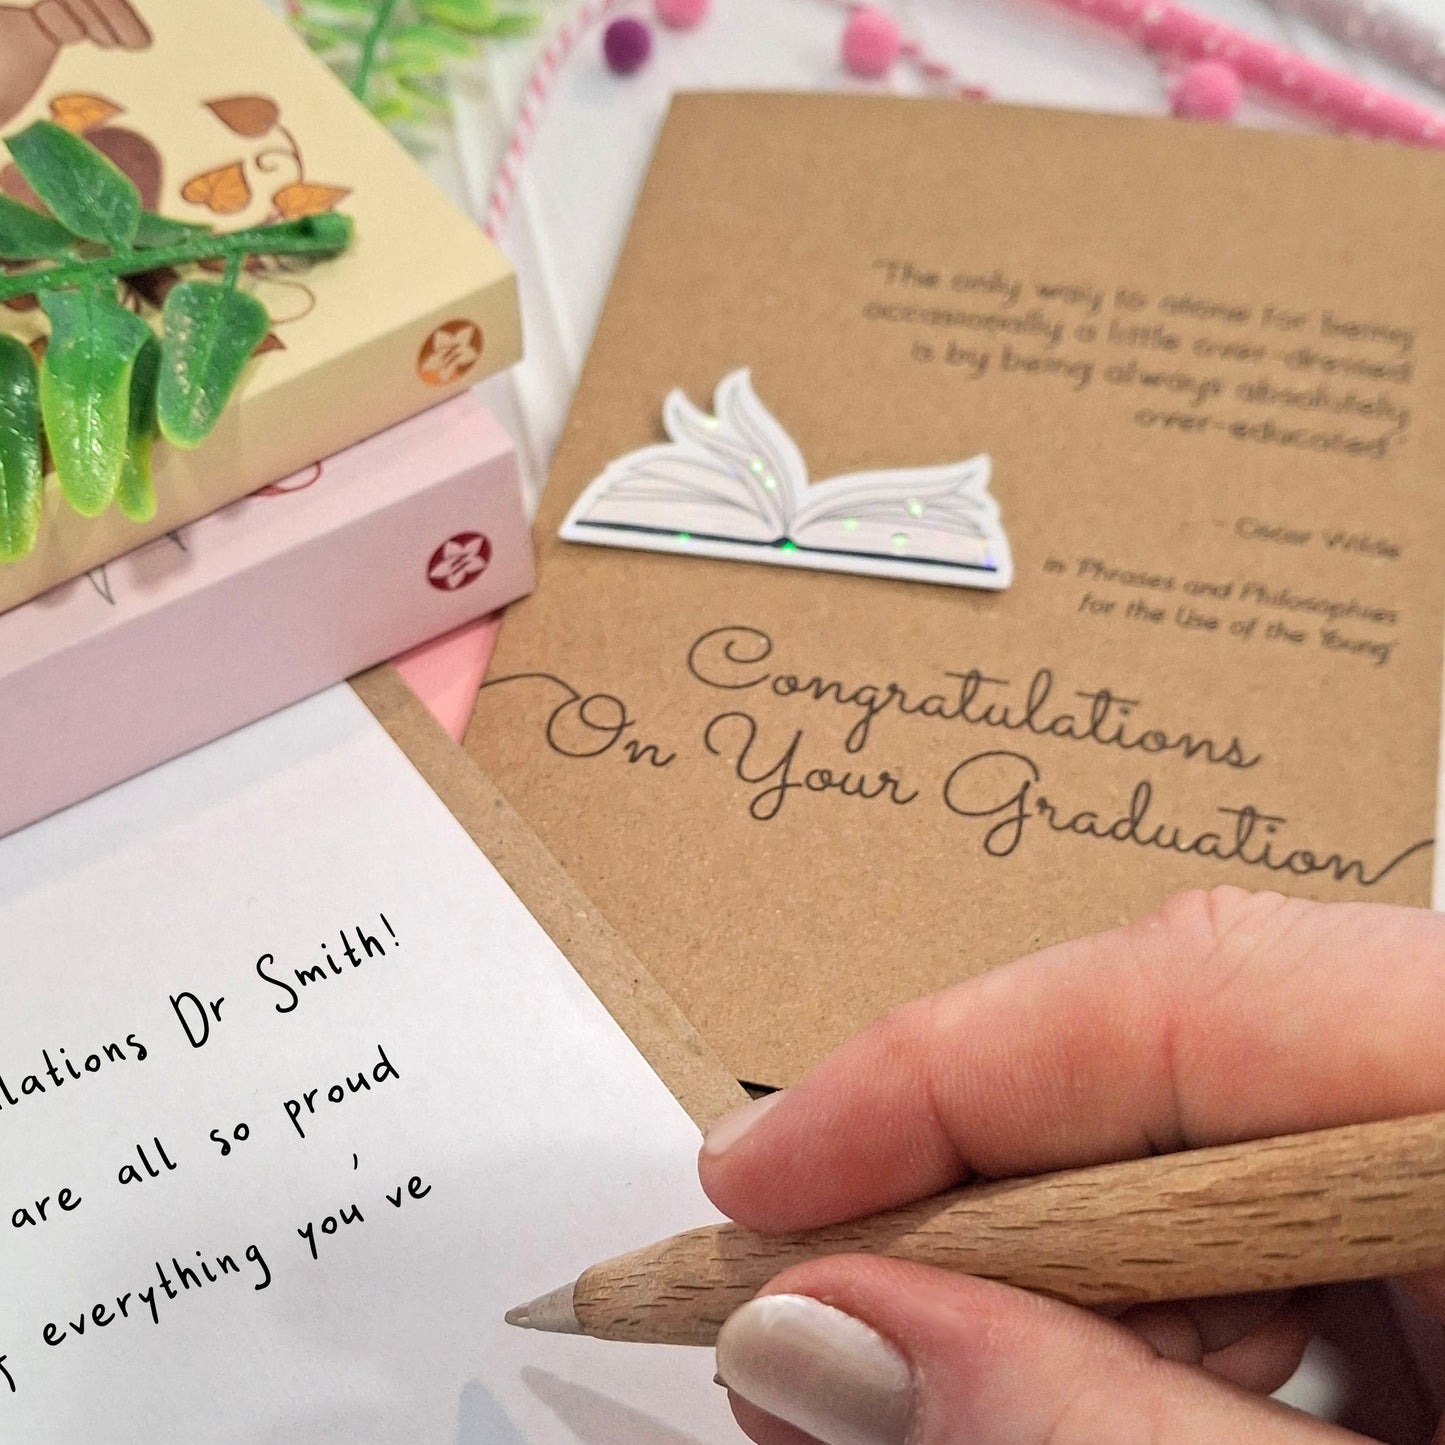 'The only way to atone for being
occasionally a little over-dressed
is by being always absolutely
over-educated'
- Oscar Wilde
in 'Phrases and Philosophies
for the Use of the Young'
Congratulations
On Your Graduation
lations Dr Smith!
are all so proud
everything you've